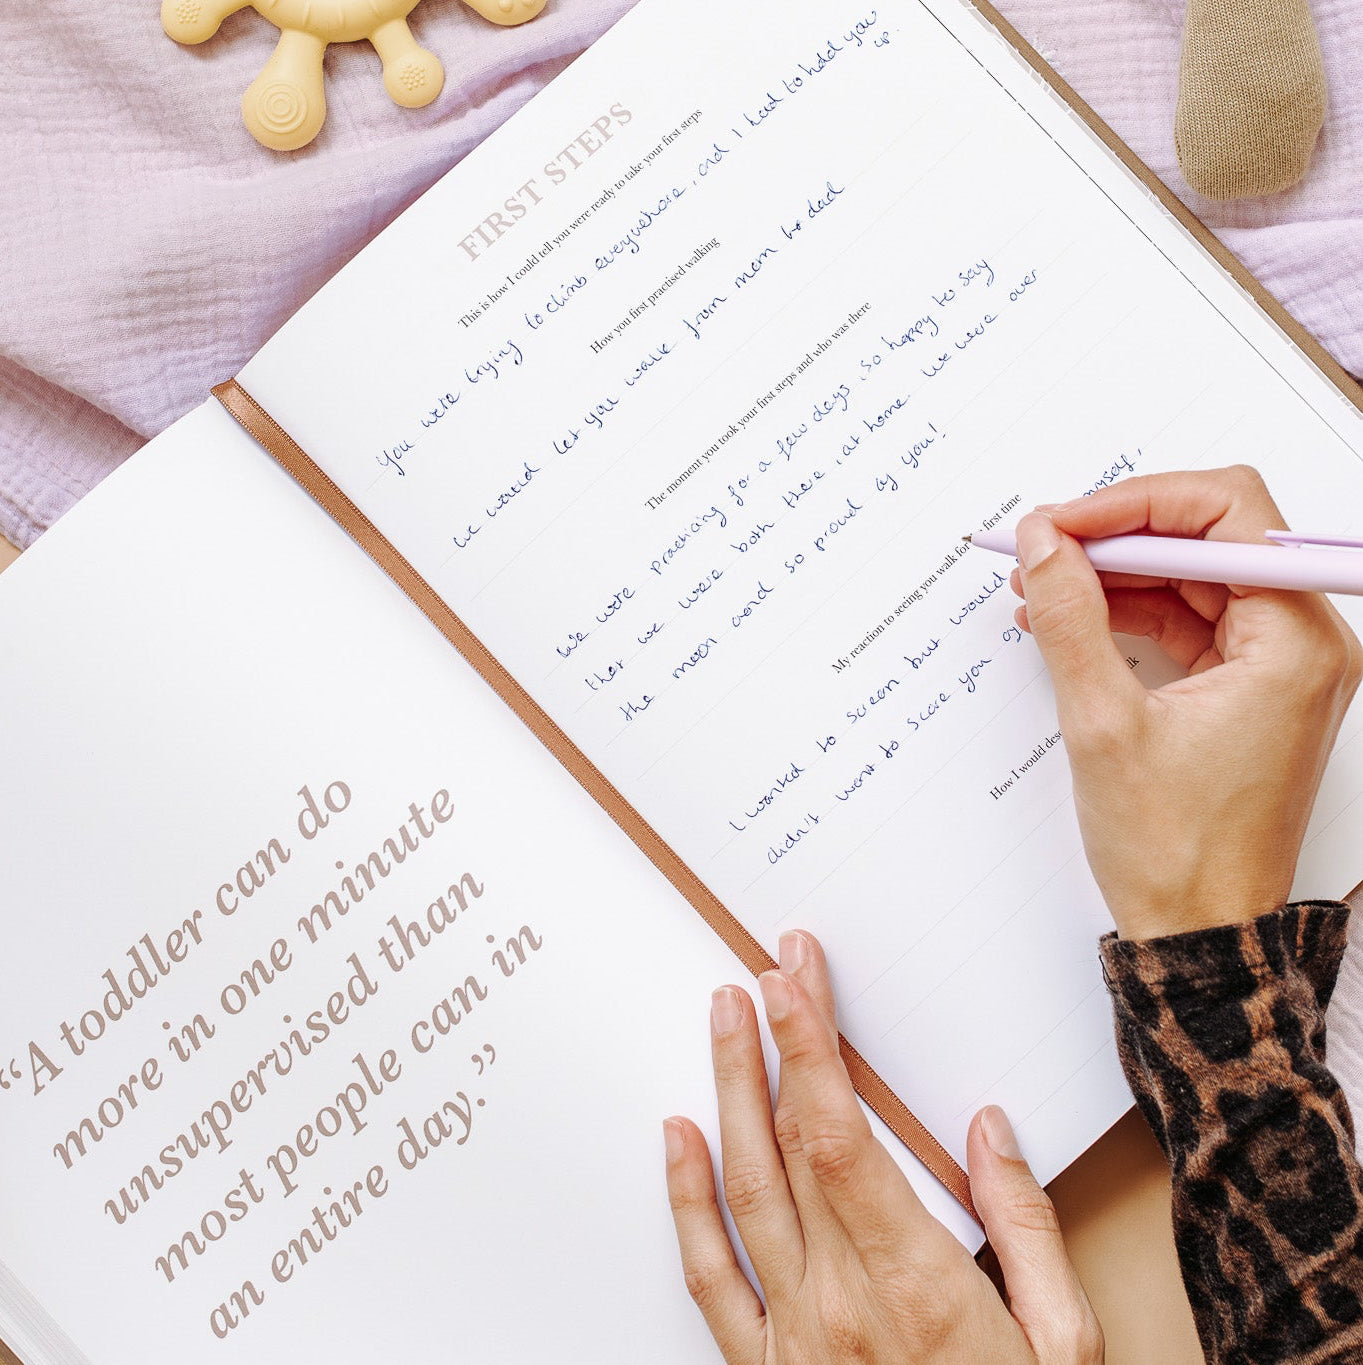 “A toddler can do
more in one minute
unsupervised than
most people can in
an entire day.”
FIRST STEPS
This is how I could tell you were ready to take your first steps
You were trying to climb everywhere, and I had to hold you
up.
How you first practised walking
We would let you walk from mom to dad
The moment you took your first steps and who was there
We were practicing for a few days, so happy to say
that we were both there, at home. We were over
the moon and so proud of you!
My reaction to seeing you walk for first time
I wanted to scream but would myself,
didn't want to scare you
How I would